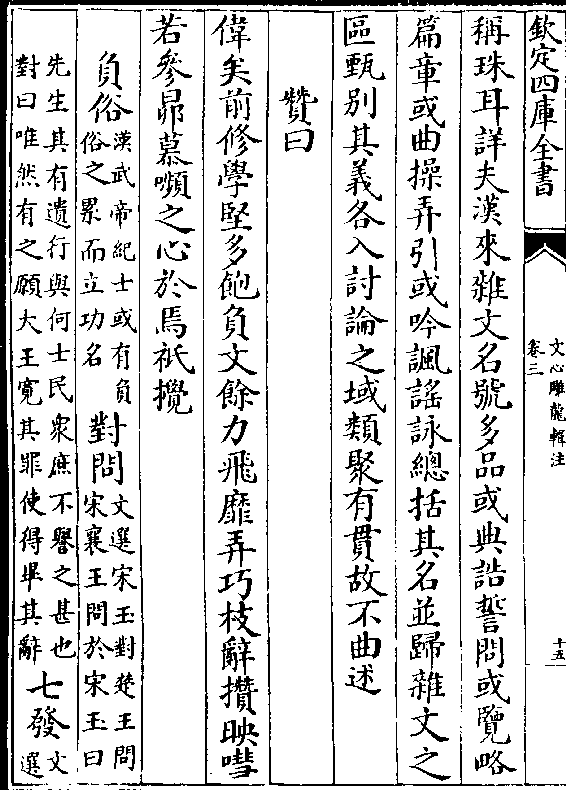 欽定四庫全書
文心雕龍輯注
卷三
十五
稱珠耳詳夫漢來雜文名號多品或典誥誓問或覽略
篇章或曲操弄引或吟諷謡詠總括其名並歸雜文之
區甄别其義各入討論之域類聚有貫故不曲述
贊曰
偉矣前修學堅多飽負文餘力飛靡弄巧枝辭攢映嘒
若參昴慕嚬之心於焉祇攪
負俗
漢武帝紀士或有負
俗之累而立功名
對問
文選宋玉對楚王問
宋襄王問於宋玉曰
先生其有遺行與何士民衆庶不譽之甚也
對曰唯然有之願大王寛其罪使得畢其辭
七發
文
選